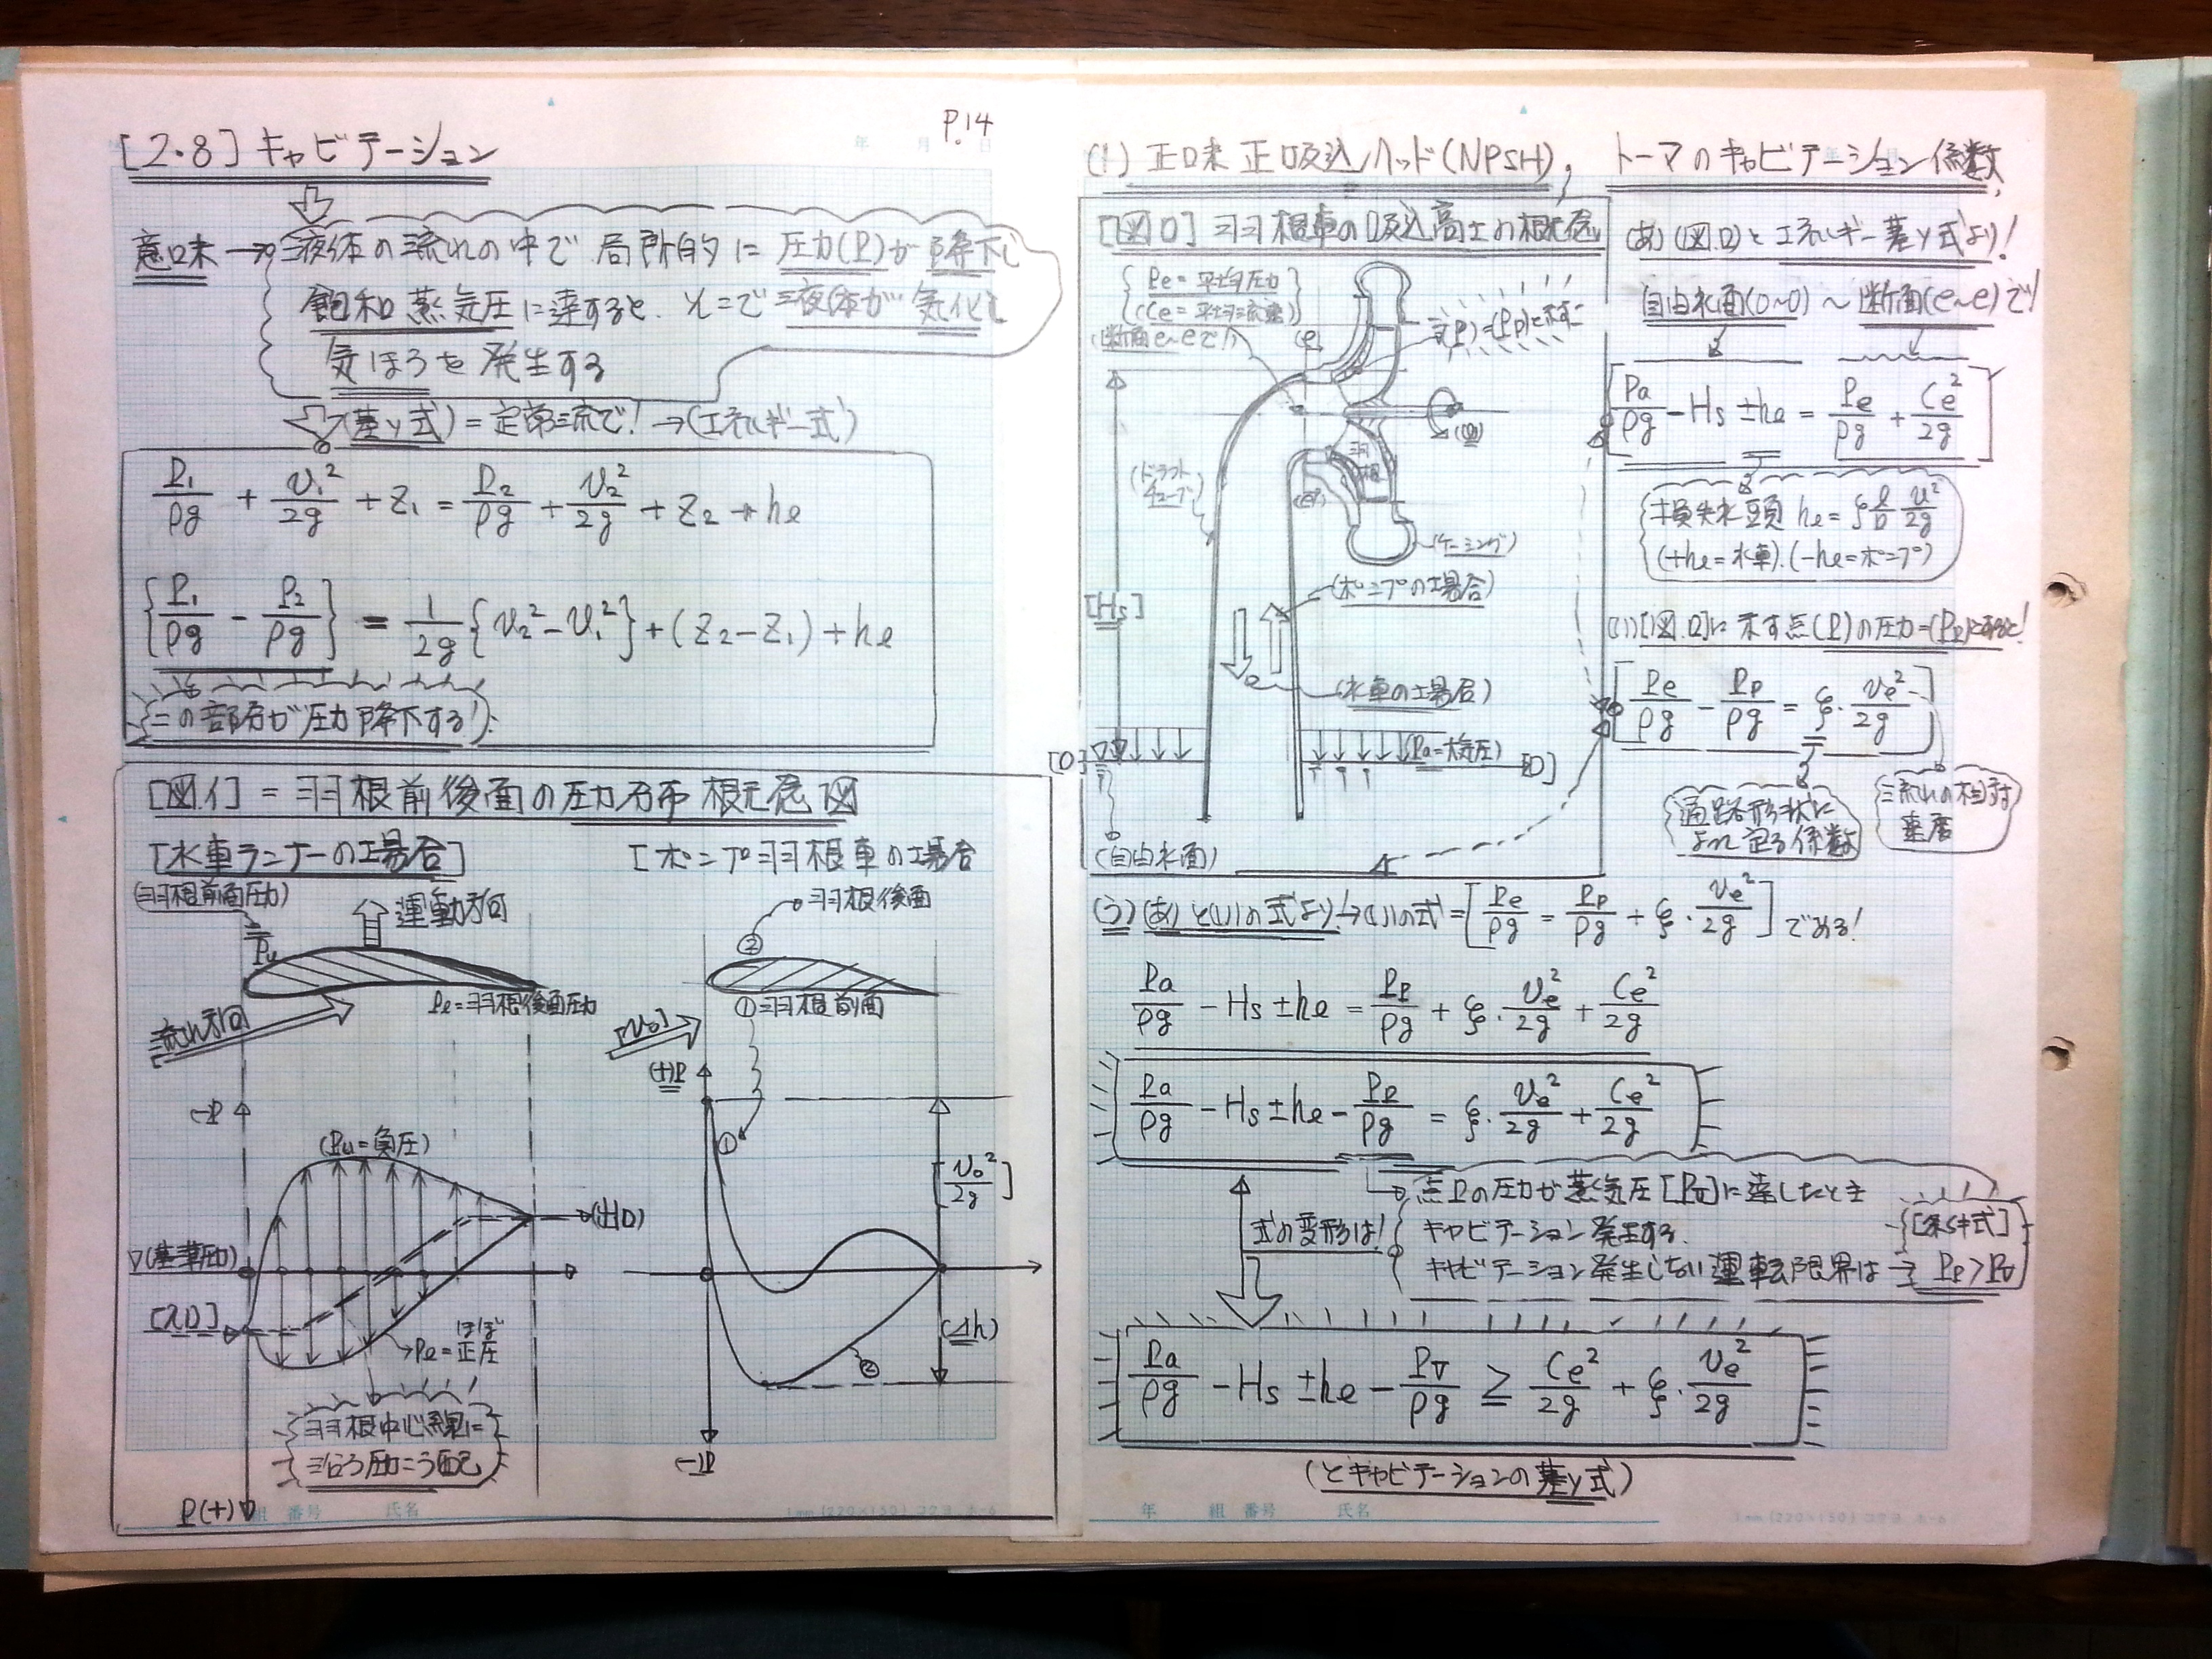 P.14
[2.8] キャビテーション
意味→液体の流れの中で局所的に圧力(P)が降下し
飽和蒸気圧に達すると、そこで液体が気化し
気ほうを発生する
(基y式)=定常流で!→(エネルギー式)
P₁/ρg + v₁²/2g + z₁ = P₂/ρg + v₂²/2g + z₂ + hℓ
{P₁/ρg - P₂/ρg} = 1/2g{v₂² - v₁²} + (z₂ - z₁) + hℓ
この部分が圧力降下する!
[図.イ] = 羽根前後面の圧力分布概念図
[水車ランナーの場合]
[ポンプ羽根車の場合
(羽根前面圧力)
運動方向
羽根後面
②
Pu
Pe=羽根後面圧力
①羽根前面
流れ方向
[v₀]
(+)P
-P
①
(Pu=負圧)
[v₀²/2g]
(出口)
▽(基準圧力)
[入口]
(Δh)
Pe=ほぼ正圧
②
羽根中心線に
沿う圧力こう配
(-)P
P(+)
組 番号 氏名
(1) 正味正吸込ヘッド(NPSH), トーマのキャビテーション係数,
[図ロ] 羽根車の吸込高さの概念
Pe = 平均圧力
Ce = 平均流速
(断面e~eで!)
(e)
点(P)=(Pp)と示す
(ω)
(ドラフトチューブ)
羽根
(e')
(ケーシング)
[Hs]
(ポンプの場合)
(水車の場合)
[O]
(Pa=大気圧)
[O]
(自由水面)
(あ) (図.ロ)とエネルギー基y式より!
自由水面(0~0) ~ 断面(e~e)で!
[Pa/ρg - Hs ± hℓ = Pe/ρg + Ce²/2g]
損失水頭 hℓ = ζ ℓ/D u²/2g
(+hℓ=水車).(-hℓ=ポンプ)
(い) [図.ロ]に示す点(P)の圧力=(Pp)とすると!
[Pe/ρg - Pp/ρg = ξ・ve²/2g]
通路形状に
よって定る係数
流れの相対
速度
(う) (あ)と(い)の式より!→(い)の式=[Pe/ρg = Pp/ρg + ξ・ve²/2g] である!
Pa/ρg - Hs ± hℓ = Pp/ρg + ξ・ve²/2g + Ce²/2g
Pa/ρg - Hs ± hℓ - Pp/ρg = ξ・ve²/2g + Ce²/2g
点Pの圧力が蒸気圧[Pv]に達したとき
式の変形は!
キャビテーション発生する.
[条件式]
キャビテーション発生しない運転限界は→ Pp > Pv
Pa/ρg - Hs ± hℓ - Pv/ρg ≧ Ce²/2g + ξ・ve²/2g
(とキャビテーションの基y式)
年 組 番号 氏名